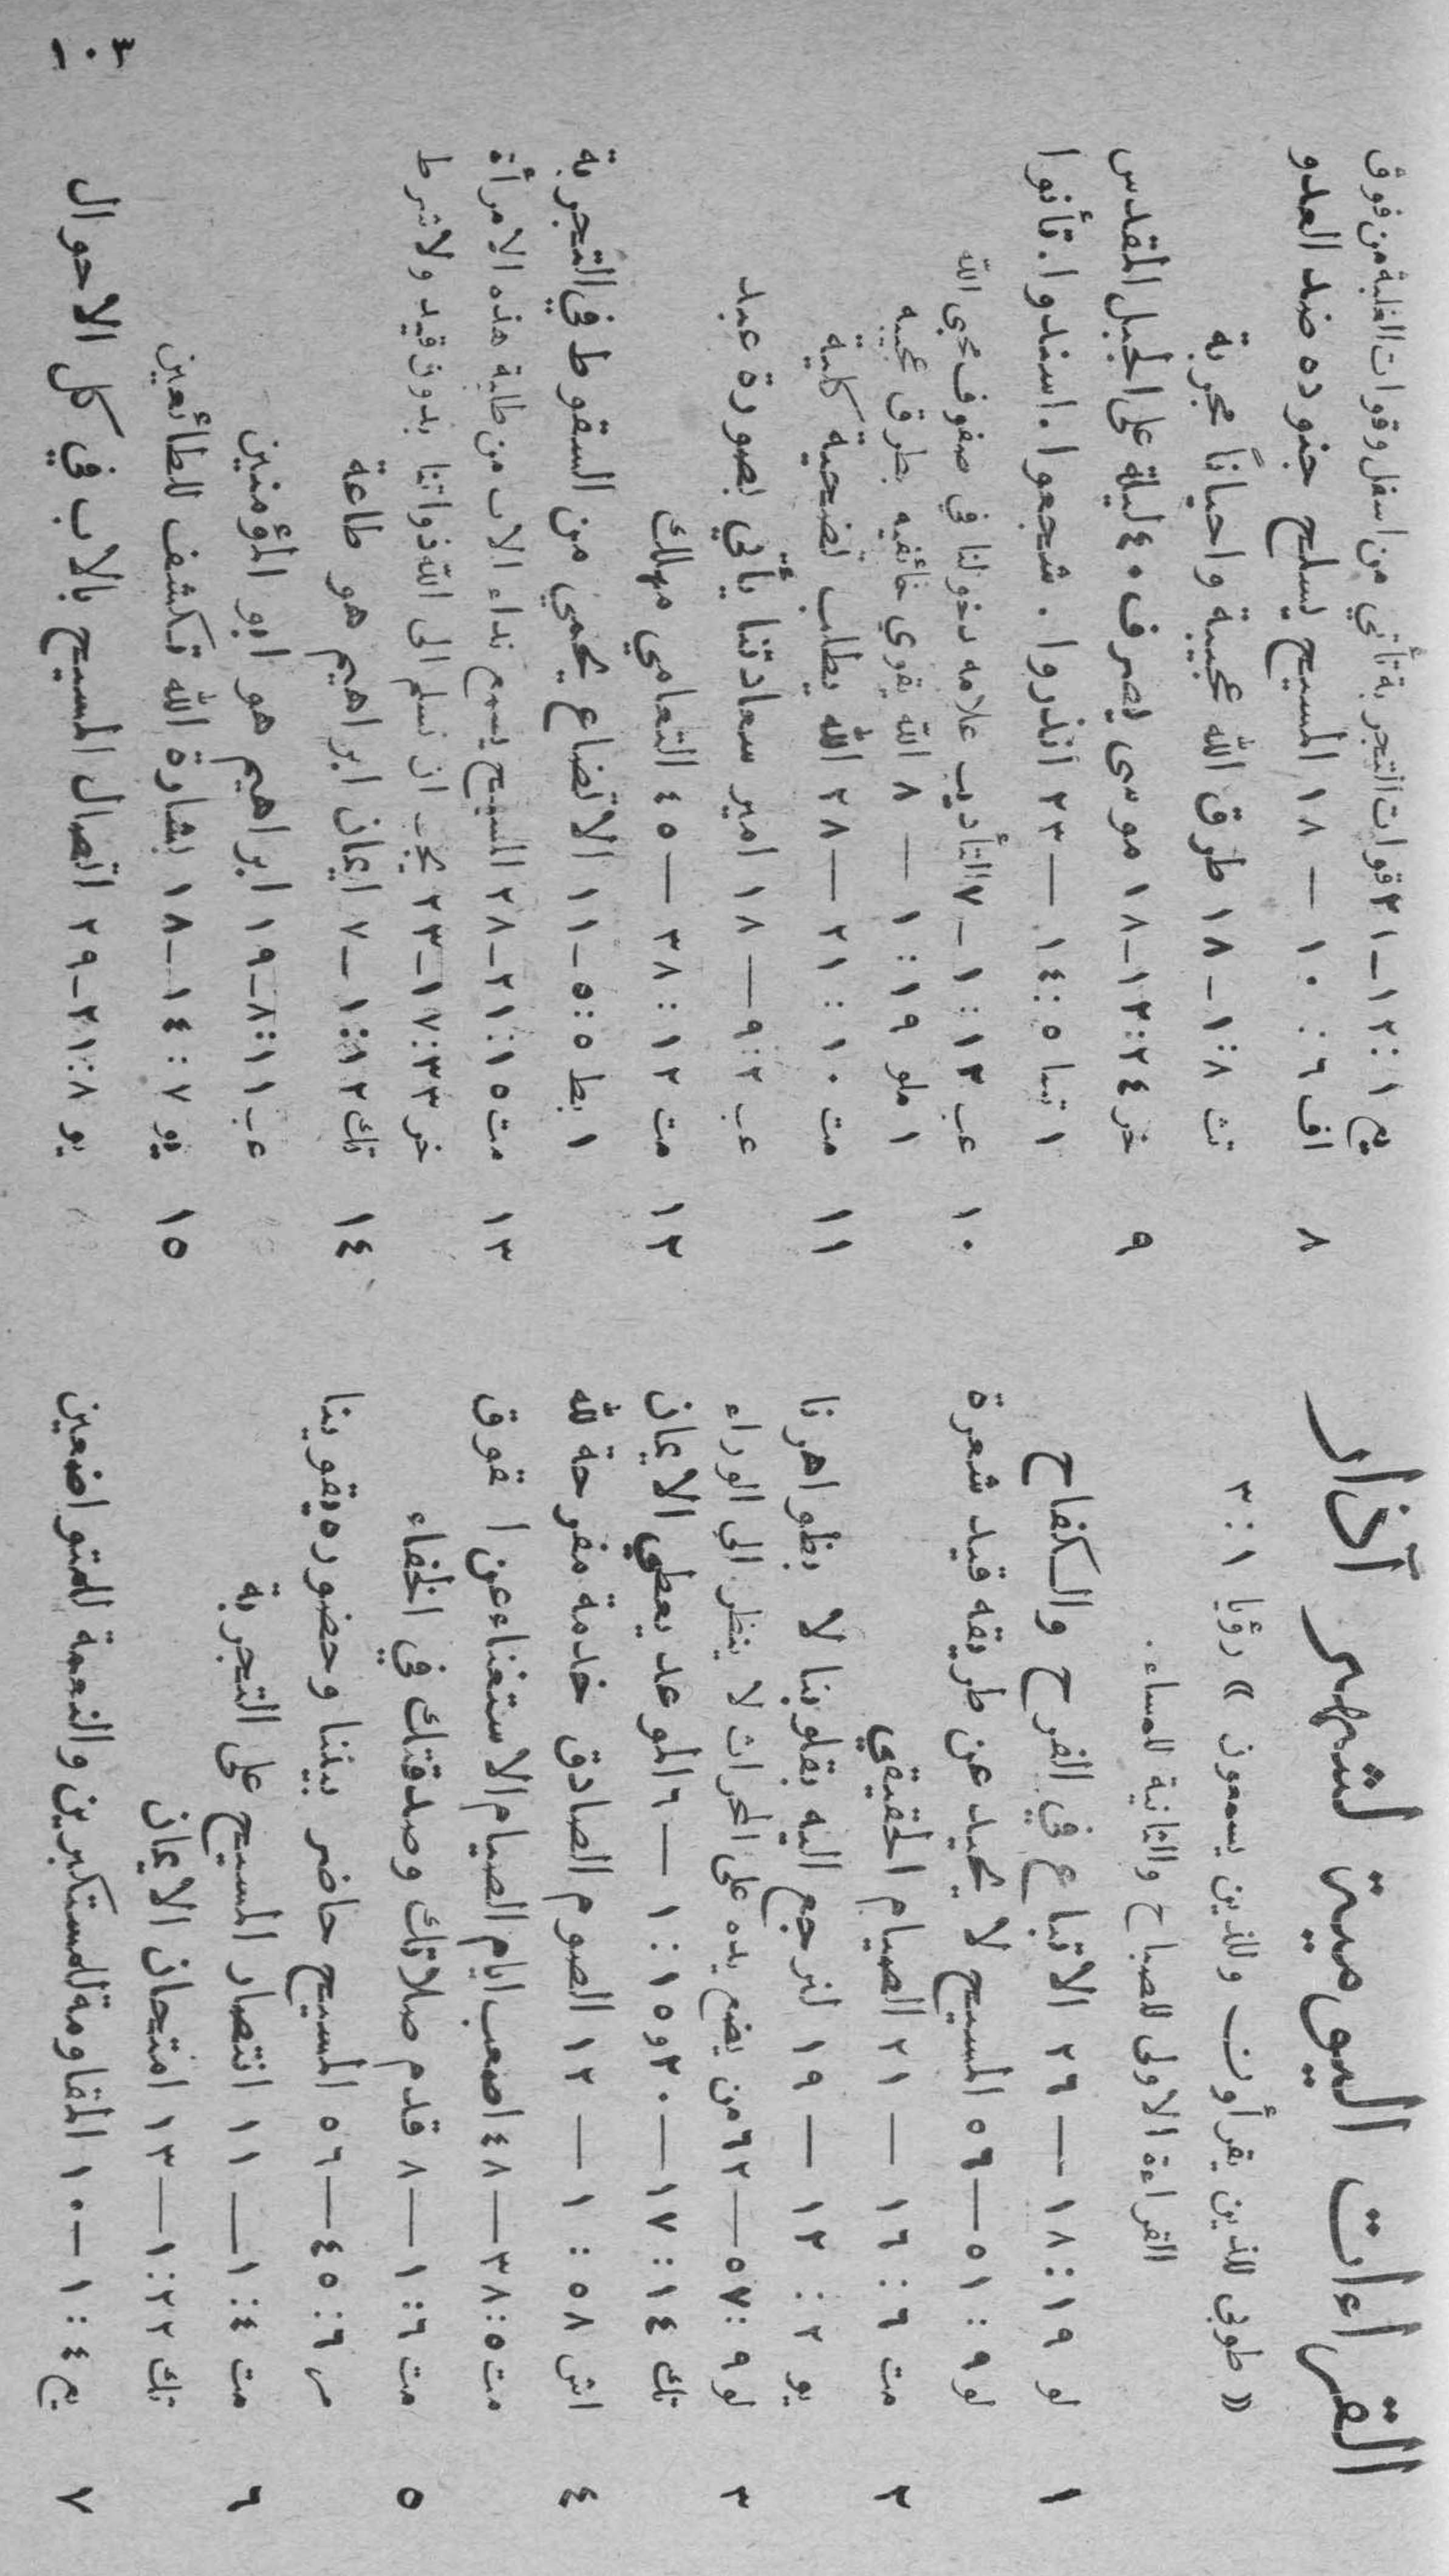 القراءات اليومية لشهر آذار
« طوبى للذين يقرأون وللذين يسمعون » رؤيا ١ : ٣
القراءة الاولى للصباح والثانية للمساء .
١ لو ١٩ : ١٨ — ٢٦ الاتباع في الفرح والكفاح
لو ٩ : ٥١ — ٥٦ المسيح لا يحيد عن طريقه قيد شعرة
٢ مت ٦ : ١٦ — ٢١ الصيام الحقيقي
يو ٢ : ١٢ — ١٩ لنرجع اليه بقلوبنا لا بظواهرنا
٣ لو ٩ : ٥٧ — ٦٢ من يضع يده على المحراث لا ينظر الى الوراء
تك ١٤ : ١٧ — ٢٠ و ١٥ : ١ — ٦ الموعد يعطي الايمان
٤ اش ٥٨ : ١ — ١٢ الصوم الصادق خدمة مفرحة لله
مت ٥ : ٣٨ — ٤٨ اصعب ايام الصيام الاستغناء عن ا قوق
٥ مت ٦ : ١ — ٨ قدم صلاتك وصدقتك في الخفاء
مر ٦ : ٤٥ — ٥٦ المسيح حاضر بيننا وحضوره يقوينا
٦ مت ٤ : ١ — ١١ انتصار المسيح على التجربة
تك ٢٢ : ١ — ١٣ امتحان الايمان
٧ يع ٤ : ١ — ١٠ المقاومة للمستكبرين والنعمة للمتواضعين
يع ١ : ١٢ — ٢١ قوات التجربة تأتي من اسفل وقوات الغلبة من فوق
٨ اف ٦ : ١٠ — ١٨ المسيح يسلح جنوده ضد العدو
تث ٨ : ١ — ١٨ طرق الله عجيبة واحياناً مجربة
٩ خر ٢٤ : ١٢ — ١٨ موسى يصرف ٤٠ ليلة على الجبل المقدس
١ تسا ٥ : ١٤ — ٢٣ انذروا . شجعوا . اسندوا . تأنوا
١٠ عب ١٢ : ١ — ٧ التأديب علامه دخولنا في صفوف محبى الله
١ ملو ١٩ : ١ — ٨ الله يقوي خائفيه بطرق عجيبه
١١ مت ١٠ : ٢١ — ٢٨ الله يطلب تضحية كلية
عب ٢ : ٩ — ١٨ امير سعادتنا يأتي بصورة عبد
١٢ مت ١٢ : ٣٨ — ٤٥ التعامي مهلك
١ بط ٥ : ٥ — ١١ الاتضاع يحمي من السقوط في التجربة
١٣ مت ١٥ : ٢١ — ٢٨ المسيح يسمع نداء الاب من طلبة هذه الامرأة
خر ٣٣ : ١٧ — ٢٣ يجب ان نسلم الى الله ذواتنا بدون قيد ولا شرط
١٤ تك ١٢ : ١ — ٧ ايمان ابراهيم هو طاعة
عب ١١ : ٨ — ١٩ ابراهيم هو ابو المؤمنين
١٥ يو ٧ : ١٤ — ١٨ بشارة الله تكشف للطائعين
يو ٨ : ٢١ — ٢٩ اتصال المسيح بالاب في كل الاحوال
١٠٣